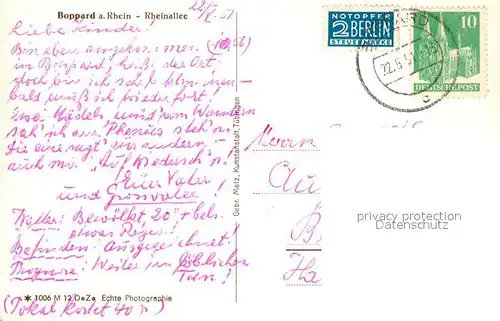 Boppard a. Rhein - Rheinallee
22/V. 51
Liebe Kinder!
Bin eben angekommen
in Boppard, heißt der Ort
doch bin ich sehr
bald muß ich wieder fort!
und vom Wandern
seh' ich am steh'n
Die eine sagt zur andern
auch nur "Auf Wiederseh'n"
Euer Vater
und Grossvater!
Wetter: Bewölkt 20° + Cels.
etwas Regen!
Befinden: Ausgezeichnet
Prognose: Weiter im löblichen
Tun!
✶ 1006 M 12 D✶Z✶ Echte Photographie
(Pokal kostet 40
Gebr. Metz, Kunstanstalt, Tübingen
NOTOPFER
2 BERLIN
STEUERMARKE
10
DEUTSCHE POST
22.5.51
c
Herrn
Au
B
Ha
privacy protection
Datenschutz